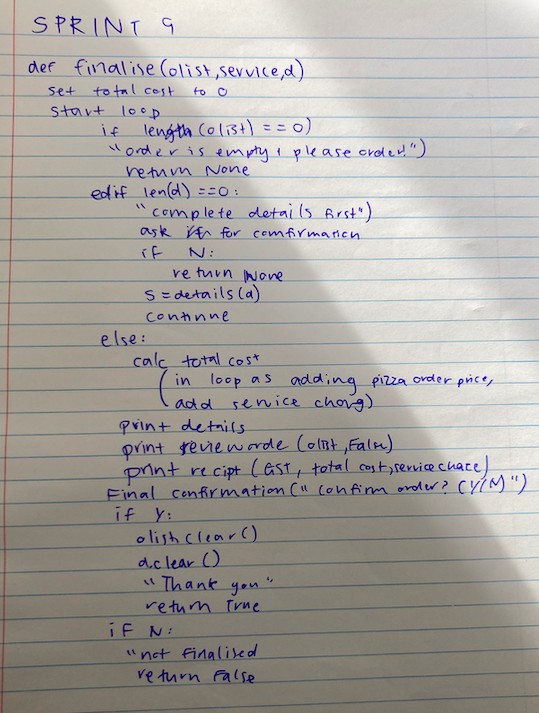 SPRINT 9
def finalise(olist,service,d)
set total cost to 0
start loop
if length(olist) == 0)
"order is empty, please order!")
return None
elif len(d) ==0:
"complete details first")
ask for comfirmation
if N:
return None
S = details(d)
continue
else:
calc total cost
(in loop as adding pizza order price,
add service charg)
print details
print revieworde (olist, False)
print recipt (GST, total cost, servicecharge)
Final confirmation(" confirm order? (Y/N)")
if Y:
olist.clear()
d.clear()
"Thank you"
return True
if N:
"not finalised
return False